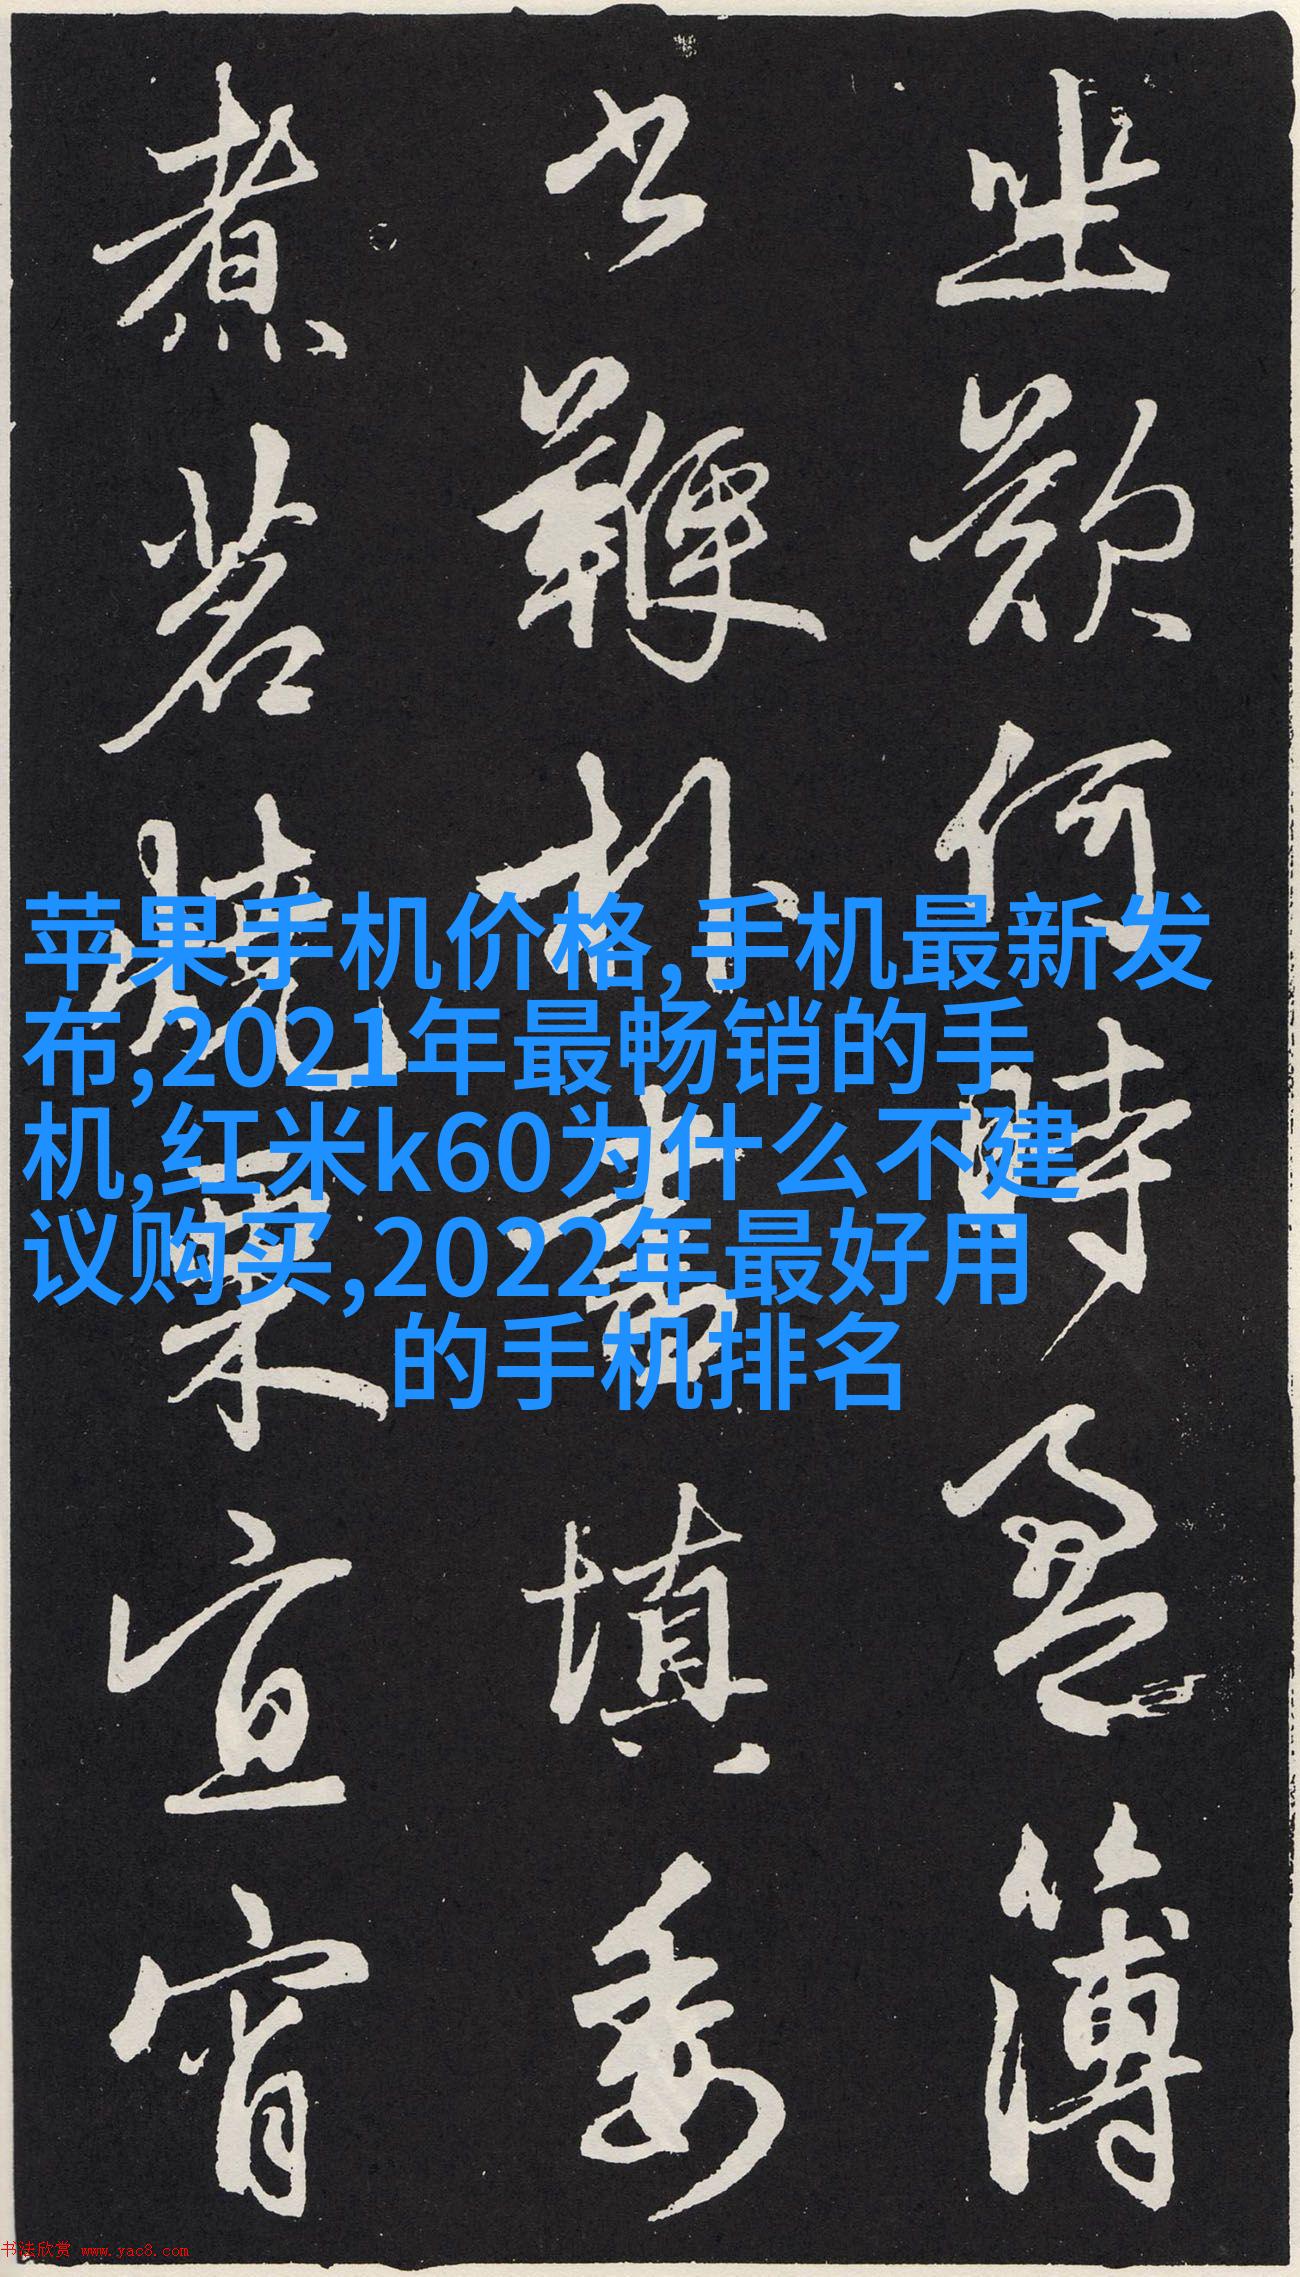 止欲何時盈簿
书鞭扑書填委
煮茗燒栗宜宵
苹果手机价格,手机最新发
布,2021年最畅销的手
机,红米k60为什么不建
议购买,2022年最好用
的手机排名
书法欣赏 www.yac8.com